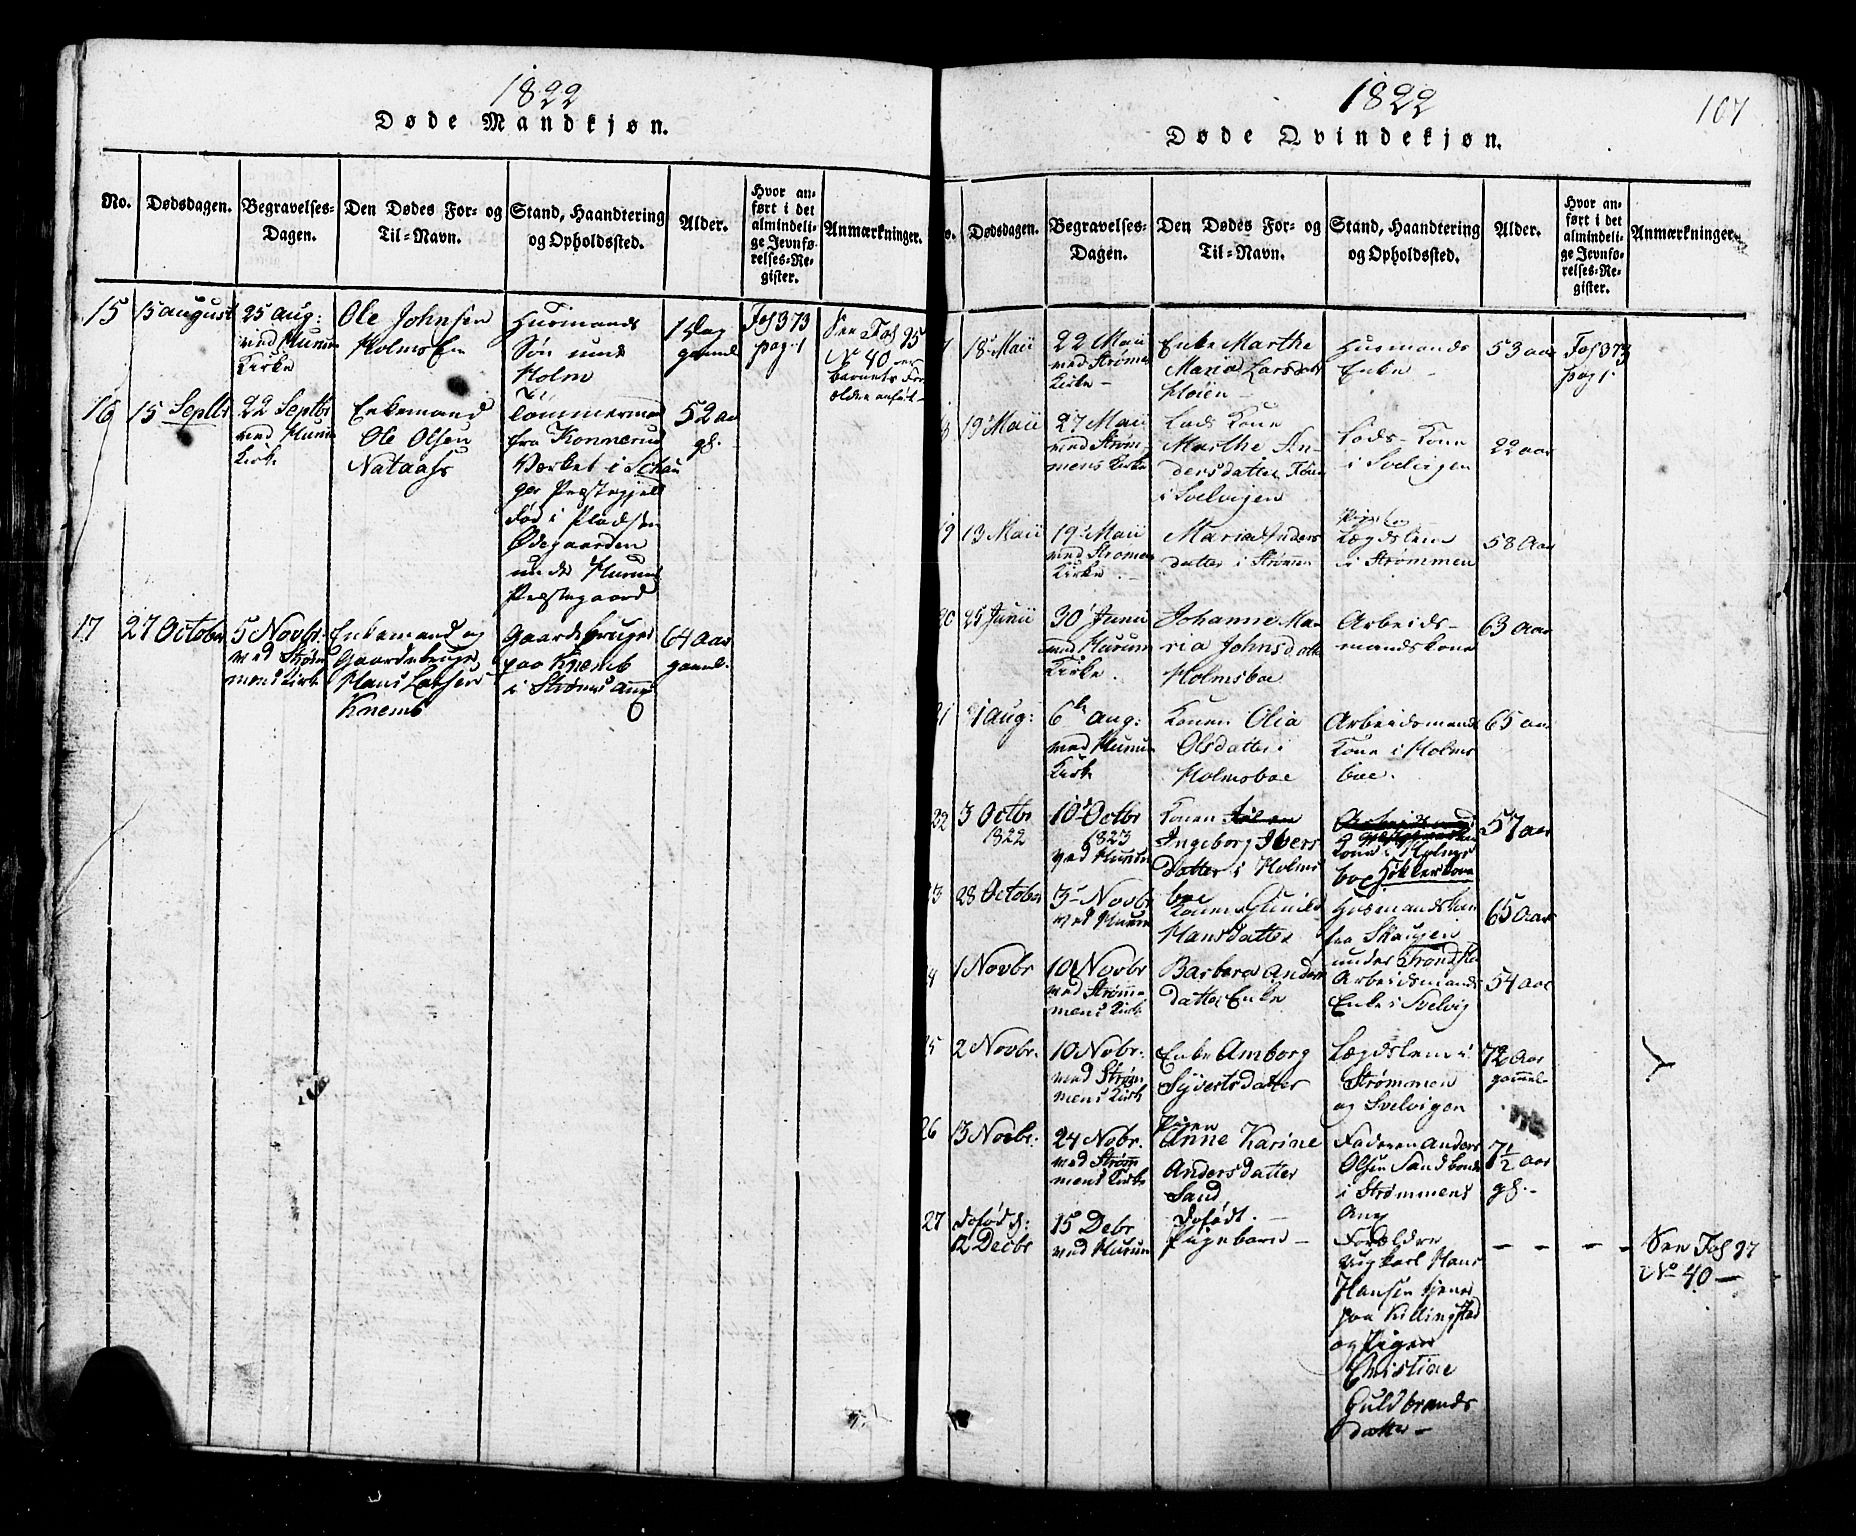 1822
Døde Mandkjøn.
No.
Dødsdagen.
Begravelses-
Dagen.
Den Dødes For- og
Til-Navn.
Stand, Haandtering
og Opholdssted.
Alder.
Hvor an-
ført i det
almindeli-
ge Jevnfø-
relses-Re-
gister.
Anmærkninger.
15
15 august
25 aug:
ved Hurum
Kirke
Ole Johnsen
Holmsbo
Huusmands
Søn under
Holm
1 Dag
gammel
Fol 373
pag. 1
See Fol 95
No 40 over
barnets For
ældre anført
16
15 Septbr
22 Septbr
ved Hurum
Kirke
Enkemand
Ole Olsen
Nataass
Tømmermand
fra Konnerud
Værket i
Præstegjeld
Fød i Pladsen
Ødegaarden
under Hurums
Præstegaard
52 aar
gl.
17
27 October
5 Novbr.
ved Strøm
mens Kirke
Enkemand og
Gaardebruger
Hans Larsen
Knems
Gaardebruger
paa Knems
i Strømms Ang
64 Aar
gammel.
1822
107
Døde Qvindekjøn.
Dødsdagen.
Begravelses-
Dagen.
Den Dødes For- og
Til-Navn.
Stand, Haandtering
og Opholdssted.
Alder.
Hvor an-
ført i det
almindeli-
ge Jevnfø-
relses-Re-
gister.
Anmærkninger.
7
18 Maii
22 Maii
ved Strømm
Kirke
Enke Marthe
Maria Larsdatter
Høien
Huusmands
Enke
53 aar
Fol 373
pag 1.
8
19 Maii
27 Maii
ved Strøm
mens Kirke
Lods Kone
Marthe An
dersdatter
i Svelvigen
Lods-Kone
i Svelvigen
22 aar
9
13 Maii
19 Maii
ved Strømmens
Kirke
Maria Anders
datter i Strømmen
Lægdslem
i Strømmen
58 Aar
20
25 Junii
30 Junii
ved Hurum
Kirke
Johanne Ma
ria Johnsdatter
Holmsboe
Arbeids-
mandskone
63 Aar
21
1 aug:
6 aug:
ved Hurum
Kirke
Konen Olia
Olsdatter i
Holmsboe
Arbeidsmands
Kone i Holms
boe.
65 aar
22
3 Octbr
1822
10 Octbr
1823
ved Hurum
Konen
Ingeborg Ivers
datter i Holms
boe
Kone i Holms
boe Høkkerkone
57 aar
23
28 October
3 Novbr
ved Hurum
Konen Gunild
Hansdatter
Huusmandskone
fra Skaugen
under
65 Aar
4
1 Novbr
10 Novbr
ved Strøm
mens Kirke
Barbara Anders
datter Enke
Arbeidsmands
Enke i Svelvig
54 aar
25
2 Novbr.
10 Nobr:
ved Strøm
mens Kirke
Enke Amborg
Syvertsdatter
Lægdslem i
Strømmen
og Svelvigen
72 Aar
gammel.
26
13 Novbr:
24 Nobr.
ved Strøm
mens Kirke
Pigen
Anne Karine
Andersdatter
Sand
Faderen Anders
Olsen Sand bonde
i Strømmens
Ang
7 1/2 aar
gl.
27
Dødfød d:
12 Decbr
15 Debr
ved Hurum
Dødfødt
Pigebarn
Forældre
Ungkarl Hans
Hansen tjener
paa Killingstad
og Pigen
Christine
Guldbrands
datter
See Fol 97
No 40